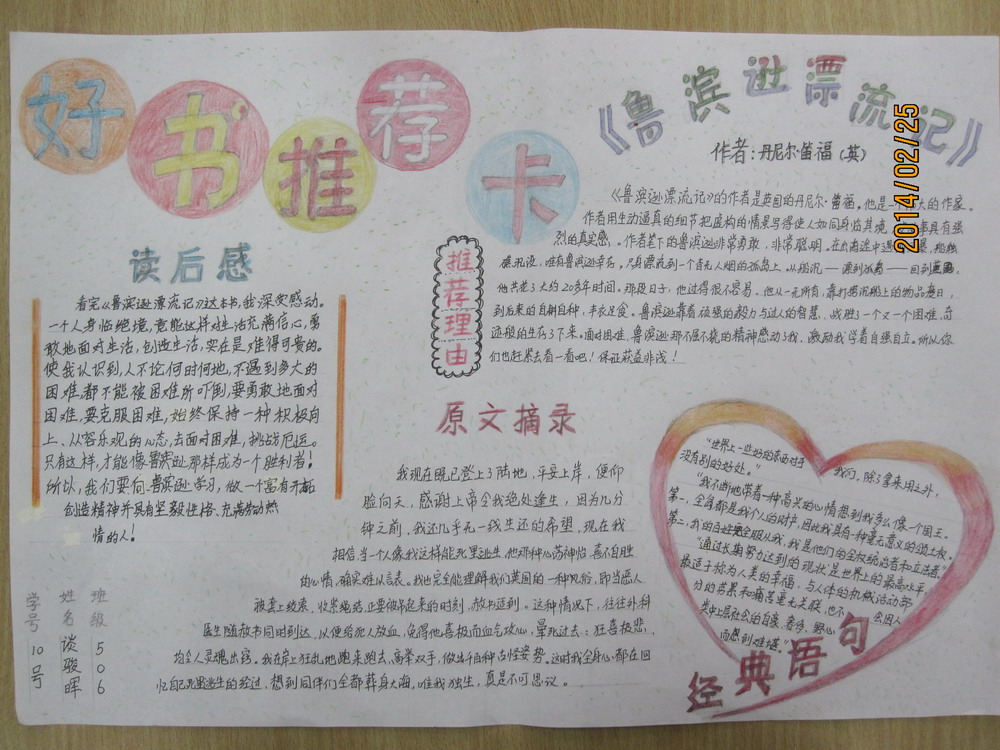 好书推荐卡
《鲁滨逊漂流记》
作者:丹尼尔·笛福(英)
2014/02/25
推荐理由
《鲁滨逊漂流记》的作者是英国的丹尼尔·笛福。他是一大的作家。
作者用生动逼真的细节把虚构的情景写得使人如同身临其境,具有强
烈的真实感。作者笔下的鲁滨逊非常勇敢,非常聪明。在出海途中遇
唯有鲁滨逊幸存,只身漂流到一个杳无人烟的孤岛上。从
他共花了大约20多年时间。那段日子,他过得很不容易。他从一无所有,靠打捞沉船上的物品度日,
到后来的自耕自种,丰衣足食。鲁滨逊靠着顽强的毅力与过人的智慧,战胜了一个又一个困难,奇
迹般的生存了下来。面对困难,鲁滨逊那不屈不挠的精神感动了我,激励我学着自强自立。所以你
们也赶紧去看一看吧!保证获益非浅!
读后感
看完《鲁滨逊漂流记》这本书,我深实感动。
一个人身临绝境,竟能这样对生活充满信心,勇
敢地面对生活,创造生活,实在是难得可贵的。
使我认识到,人不论何时何地,不遇到多大的
困难,都不能被困难所吓倒,要勇敢地面对
困难,要克服困难,始终保持一种积极向
上、从容乐观的心态,去面对困难,挑战厄运。
只有这样,才能像鲁滨逊那样成为一个胜利者!
所以,我们要向鲁滨逊学习,做一个富有开拓
创造精神并具有坚毅性格、充满劳动热
情的人!
原文摘录
我现在既已登上了陆地,平安上岸,便仰
脸向天,感谢上帝令我绝处逢生,因为几分
钟之前,我还几乎无一线生还的希望,现在我
相信,当一个人像我这样能死里逃生,他那种心荡神怡,喜不自胜
的心情,确实难以言表。我也完全能理解我们英国的一种风俗,即当恶人
被套上绞索,收紧绳结,正要被吊起来的时刻,赦书适到。这种情况下,往往外科
医生随赦书同时到达,以便给犯人放血,免得他喜极而血气攻心,晕死过去:狂喜极悲,
均令人灵魂出窍。我在岸上狂乱地跑来跑去,高举双手,做出千百种古怪姿势。这时我全身心都在回
忆自己死里逃生的经过,想到同伴们全都葬身大海,唯我独生,真是不可思议。
“世界上一些好的东西对于我们,除了拿来用之外,
没有别的好处。”
“我不断地带着一种高兴的心情想到我多么像一个国王。
第一,全岛都是我个人的财产,因此我具有一种毫无意义的领土权。
第二,我的百姓完全服从我,我是他们的全权统治者和立法者。”
“通过长期努力达到的现状是世界上的最高水平,
最适于称为人类的幸福,与人体的机械活动部
分的劳累和痛苦毫无关联,也不会因人
类中上层社会的自豪、奢侈、野心
而感到难堪。”
经典语句
班级 506
姓名 谈骏晖
学号 10号